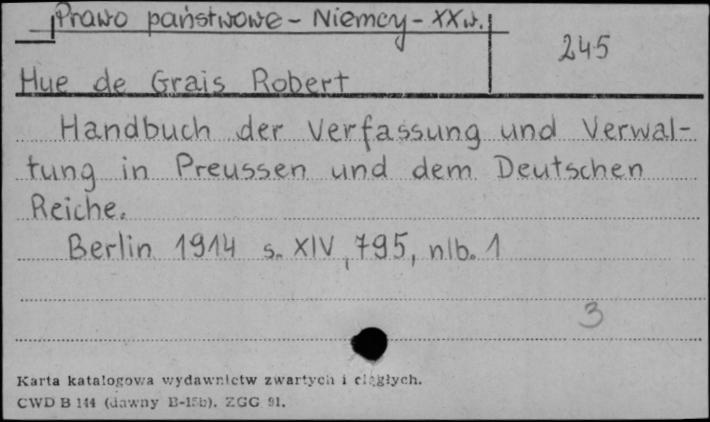 Prawo państwowe - Niemcy - XX w.
245
Hue de Grais Robert
Handbuch der Verfassung und Verwal-
tung in Preussen und dem Deutschen
Reiche.
Berlin 1914 s. XIV, 795, nlb. 1
3
Karta katalogowa wydawnictw zwartych i ciągłych.
CWD B 144 (dawny B-15b). ZGG 91.